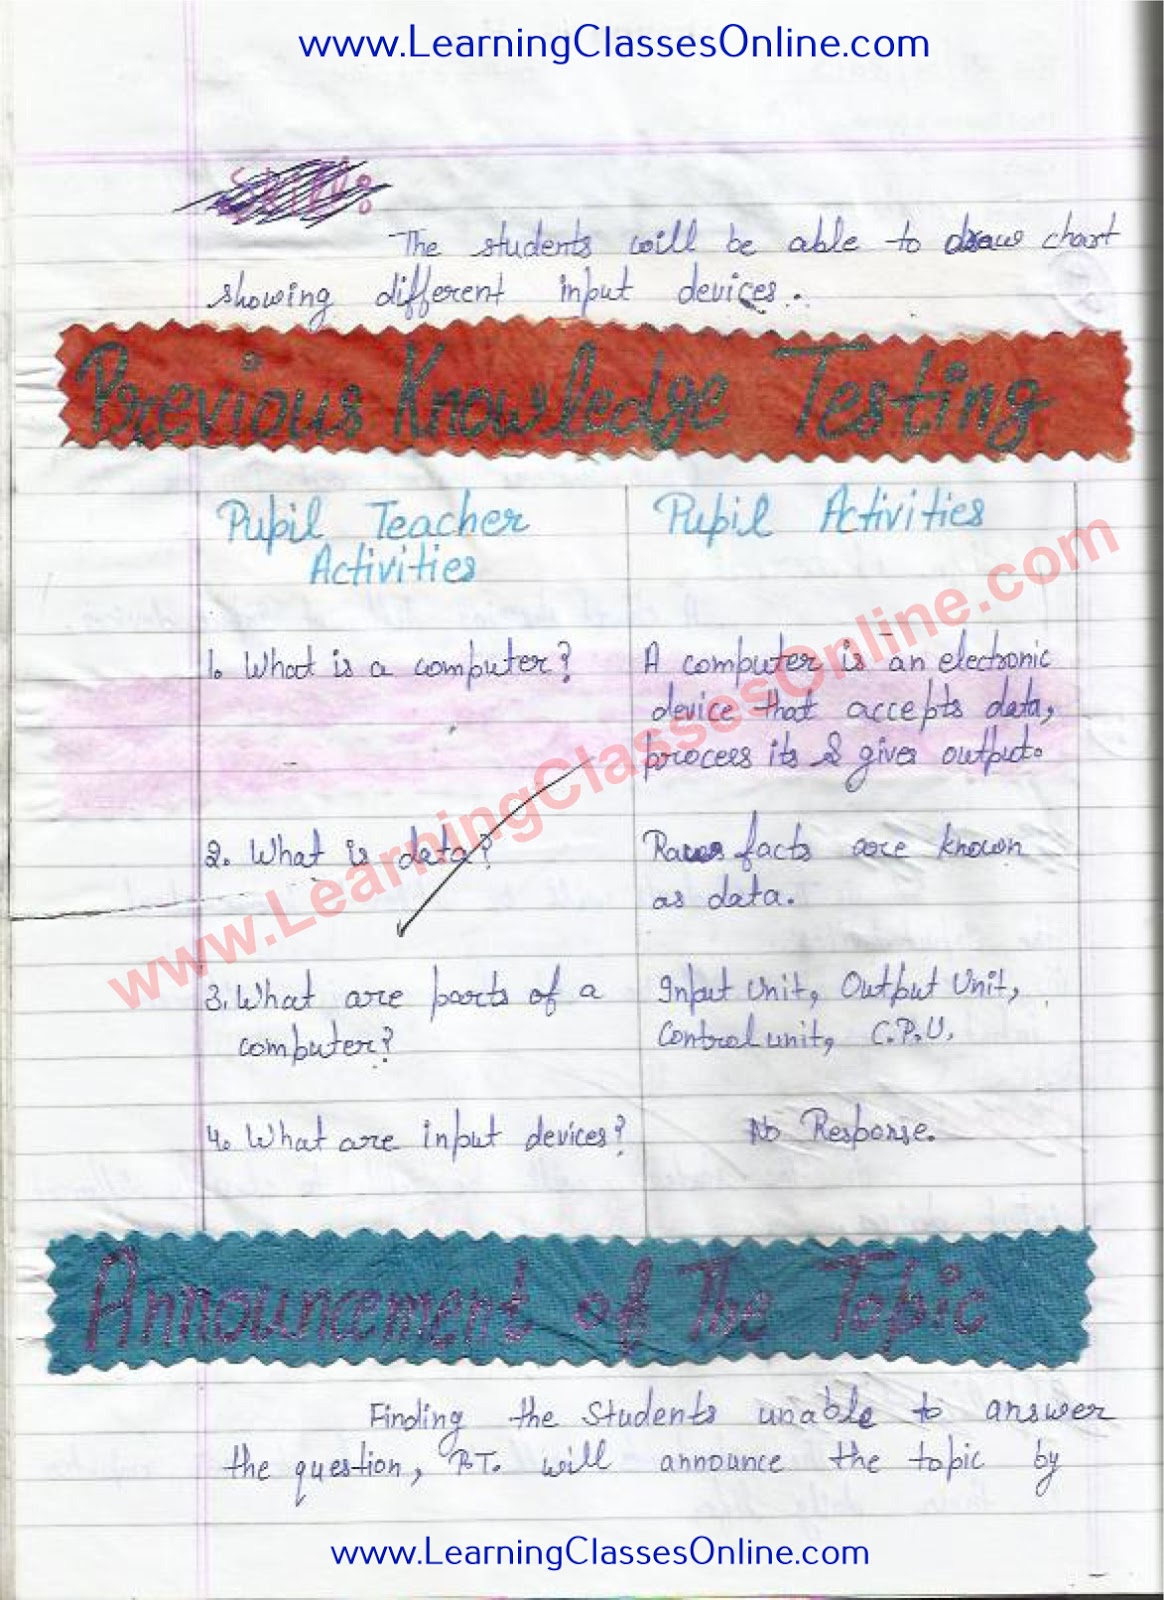 www.LearningClassesOnline.com
Skill:
The students will be able to draw chart
showing different input devices.
Previous Knowledge Testing
Pupil Teacher
Activities
Pupil Activities
1. What is a computer?
A computer is an electronic
device that accepts data,
process its & gives output.
2. What is data?
Raw facts are known
as data.
3. What are parts of a
computer?
Input Unit, Output Unit,
Control unit, C.P.U.
4. What are input devices?
No Response.
www.LearningClassesOnline.com
Announcement of The Topic
Finding the Students unable to answer
the question, P.T. will announce the topic by
www.LearningClassesOnline.com